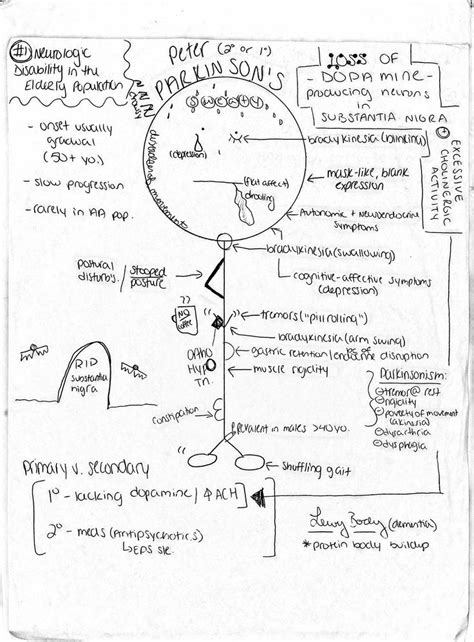 #1) Neurologic
Disability in the
Elderly Population
Peter (2° or 1°)
PARKINSON'S
LOSS OF
- DOPAMINE -
producing neurons
in
SUBSTANTIA NIGRA
EXCESSIVE
CHOLINERGIC
ACTIVITY
- onset usually
gradual
(50+ yo.)
- slow progression
- rarely in AA pop.
SWEATY
(depression)
(flat affect)
drooling
bradykinesia (blinking)
mask-like, blank
expression
Autonomic + Neuroendocrine
symptoms
bradykinesia (swallowing)
cognitive-affective symptoms
(depression)
postural
disturbs. / stooped
posture
NO
coffee
tremors ("pill rolling")
bradykinesia (arm swing)
gastric retention / endocrine disruption
muscle rigidity
ORTHO
HYPO
TN.
RIP
substantia
nigra
constipation
Parkinsonism:
tremor @ rest
rigidity
poverty of movement
(akinesia)
dysarthria
dysphagia
prevalent in males > 40 yo.
shuffling gait
Primary v. secondary
1° - lacking dopamine / ↑ ACH
2° - meds (Antipsychotics)
↳ EPS s/e.
Lewy Body (dementia)
* protein body buildup